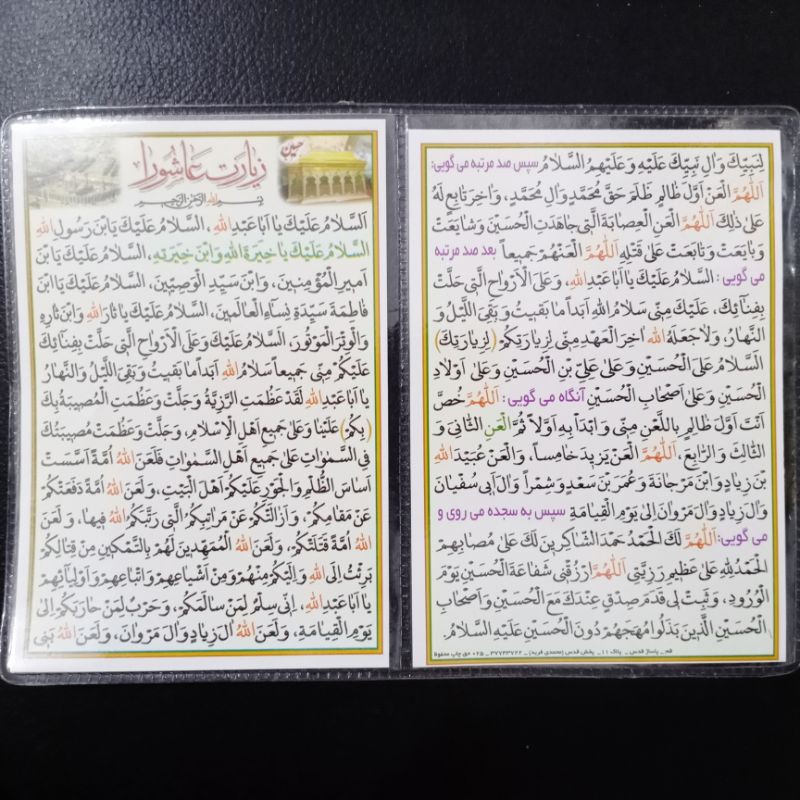 زیارت عاشورا
حسین
بِسْمِ اللهِ الرَّحْمنِ الرَّحیمِ
اَلسَّلامُ عَلَیْكَ یا اَبا عَبْدِ اللهِ، السَّلامُ عَلَیْكَ یَابْنَ رَسُولِ اللهِ
السَّلامُ عَلَیْكَ یا خِیَرَةَ اللهِ وَابْنَ خِیَرَتِهِ، السَّلامُ عَلَیْكَ یَا بْنَ
اَمیرِ الْمُؤْمِنینَ، وَابْنَ سَیِّدِ الْوَصِیّینَ، السَّلامُ عَلَیْكَ یَا ابْنَ
فاطِمَةَ سَیِّدَةِ نِساءِ الْعالَمینَ، السَّلامُ عَلَیْكَ یا ثارَ اللهِ وَابْنَ ثارِهِ
وَالْوِتْرَ الْمَوْتُورَ، السَّلامُ عَلَیْكَ وَعَلَی الْاَرْواحِ الَّتی حَلَّتْ بِفِنائِكَ
عَلَیْكُمْ مِنّی جَمیعاً سَلامُ اللهِ اَبَداً ما بَقیتُ وَبَقِیَ اللَّیْلُ وَالنَّهارُ
یا اَبا عَبْدِ اللهِ لَقَدْ عَظُمَتِ الرَّزِیَّةُ وَجَلَّتْ وَعَظُمَتِ الْمُصیبَةُ بِكَ
(بِكُمْ) عَلَیْنا وَعَلی جَمیعِ اَهْلِ الْاِسْلامِ، وَجَلَّتْ وَعَظُمَتْ مُصیبَتُكَ
فِی السَّمٰواتِ عَلی جَمیعِ اَهْلِ السَّمٰواتِ فَلَعَنَ اللهُ اُمَّةً اَسَّسَتْ
اَساسَ الظُّلْمِ وَالْجَوْرِ عَلَیْكُمْ اَهْلَ الْبَیْتِ، وَلَعَنَ اللهُ اُمَّةً دَفَعَتْكُمْ
عَنْ مَقامِكُمْ، وَاَزالَتْكُمْ عَنْ مَراتِبِكُمُ الَّتی رَتَّبَكُمُ اللهُ فیها، وَلَعَنَ
اللهُ اُمَّةً قَتَلَتْكُمْ، وَلَعَنَ اللهُ الْمُمَهِّدینَ لَهُمْ بِالتَّمْكینِ مِنْ قِتالِكُمْ
بَرِئْتُ اِلَی اللهِ وَاِلَیْكُمْ مِنْهُمْ وَمِنْ اَشْیاعِهِمْ وَاَتْباعِهِمْ وَاَوْلِیآئِهِمْ
یا اَبا عَبْدِ اللهِ، اِنّی سِلْمٌ لِمَنْ سالَمَكُمْ، وَحَرْبٌ لِمَنْ حارَبَكُمْ اِلی
یَوْمِ الْقِیامَةِ، وَلَعَنَ اللهُ الَ زِیادٍ وَالَ مَرْوانَ، وَلَعَنَ اللهُ بَنی
لِنَبِیِّكَ وَالِ نَبِیِّكَ عَلَیْهِ وَعَلَیْهِمُ السَّلامُ سپس صد مرتبه می گویی:
اَللّهُمَّ الْعَنْ اَوَّلَ ظالِمٍ ظَلَمَ حَقَّ مُحَمَّدٍ وَالِ مُحَمَّدٍ، وَاخِرَ تابِعٍ لَهُ
عَلی ذلِكَ اَللّهُمَّ الْعَنِ الْعِصابَةَ الَّتی جاهَدَتِ الْحُسَیْنَ وَشایَعَتْ
وَبایَعَتْ وَتابَعَتْ عَلی قَتْلِهِ اَللّهُمَّ الْعَنْهُمْ جَمیعاً بعد صد مرتبه
می گویی: السَّلامُ عَلَیْكَ یا اَبا عَبْدِ اللهِ، وَعَلَی الْاَرْواحِ الَّتی حَلَّتْ
بِفِنائِكَ، عَلَیْكَ مِنّی سَلامُ اللهِ اَبَداً ما بَقیتُ وَبَقِیَ اللَّیْلُ وَ
النَّهارُ، وَلا جَعَلَهُ اللهُ اخِرَ الْعَهْدِ مِنّی لِزِیارَتِكُمْ (لِزِیارَتِكَ)
السَّلامُ عَلَی الْحُسَیْنِ وَعَلی عَلِیِّ بْنِ الْحُسَیْنِ وَعَلی اَوْلادِ
الْحُسَیْنِ وَعَلی اَصْحابِ الْحُسَیْنِ آنگاه می گویی: اَللّهُمَّ خُصَّ
اَنْتَ اَوَّلَ ظالِمٍ بِاللَّعْنِ مِنّی وَ ابْدَأْ بِهِ اَوَّلاً ثُمَّ الْعَنِ الثّانِیَ وَ
الثّالِثَ وَالرّابِعَ، اَللّهُمَّ الْعَنْ یَزیدَ خامِساً، وَالْعَنْ عُبَیْدَ اللهِ
بْنَ زِیادٍ وَابْنَ مَرْجانَةَ وَعُمَرَ بْنَ سَعْدٍ وَشِمْراً وَالَ اَبی سُفْیانَ
وَالَ زِیادٍ وَالَ مَرْوانَ اِلی یَوْمِ الْقِیامَةِ سپس به سجده می روی و
می گویی: اَللّهُمَّ لَكَ الْحَمْدُ حَمْدَ الشّاكِرینَ لَكَ عَلی مُصابِهِمْ
اَلْحَمْدُ لِلّهِ عَلی عَظیمِ رَزِیَّتی اَللّهُمَّ ارْزُقْنی شَفاعَةَ الْحُسَیْنِ یَوْمَ
الْوُرُودِ، وَثَبِّتْ لی قَدَمَ صِدْقٍ عِنْدَكَ مَعَ الْحُسَیْنِ وَاَصْحابِ
الْحُسَیْنِ الَّذینَ بَذَلُوا مُهَجَهُمْ دُونَ الْحُسَیْنِ عَلَیْهِ السَّلامُ.
قم_ پاساژ قدس _ پلاک ۱۱_ پخش قدس (محمدی فرید) _ ۳۷۷۴۳۷۲۲ - ۰۲۵ حق چاپ محفوظ